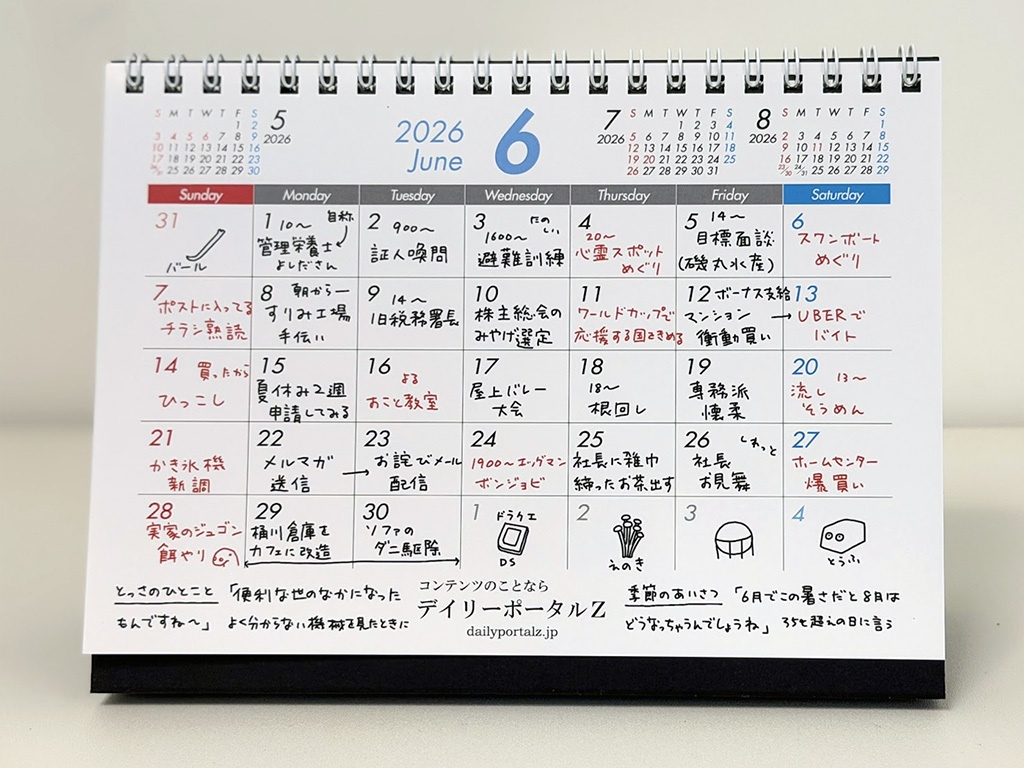 S M T W T F S
1 2
3 4 5 6 7 8 9
10 11 12 13 14 15 16
17 18 19 20 21 22 23
24/31 25 26 27 28 29 30
5
2026
2026
June
6
7
2026
S M T W T F S
1 2 3 4
5 6 7 8 9 10 11
12 13 14 15 16 17 18
19 20 21 22 23 24 25
26 27 28 29 30 31
8
2026
S M T W T F S
1
2 3 4 5 6 7 8
9 10 11 12 13 14 15
16 17 18 19 20 21 22
23/30 24/31 25 26 27 28 29
Sunday Monday Tuesday Wednesday Thursday Friday Saturday
31
バール
1 10〜 自称
管理栄養士
よしださん
2 900〜
証人喚問
3 たのしい
1600〜
避難訓練
4
20〜
心霊スポット
めぐり
5 14〜
目標面談
(磯丸水産)
6
スワンボート
めぐり
7
ポストに入ってる
チラシ熟読
8 朝から
すりみ工場
手伝い
9 14〜
旧税務署長
10
株主総会の
みやげ選定
11
ワールドカップで
応援する国きめる
12 ボーナス支給
マンション →
衝動買い
13
UBERで
バイト
14 買ったから
ひっこし
15
夏休み2週
申請してみる
16 よる
おこと教室
17
屋上バレー
大会
18
18〜
根回し
19
専務派
懐柔
20 13〜
流し
そうめん
21
かき氷機
新調
22
メルマガ →
送信
23
お詫びメール
配信
24
1900〜エッグマン
ボンジョビ
25
社長に雑巾
絞ったお茶出す
26 しれっと
社長
お見舞
27
ホームセンター
爆買い
28
実家のジュゴン
餌やり
29
桶川倉庫を
カフェに改造
30
ソファの
ダニ駆除
1 ドラクエ
DS
2
えのき
3
4
とうふ
とっさのひとこと 「便利な世のなかになった
もんですね〜」 よく分からない機械を見たときに
コンテンツのことなら
デイリーポータルZ
dailyportalz.jp
季節のあいさつ 「6月でこの暑さだと8月は
どうなっちゃうんでしょうね」 35℃超えの日に言う